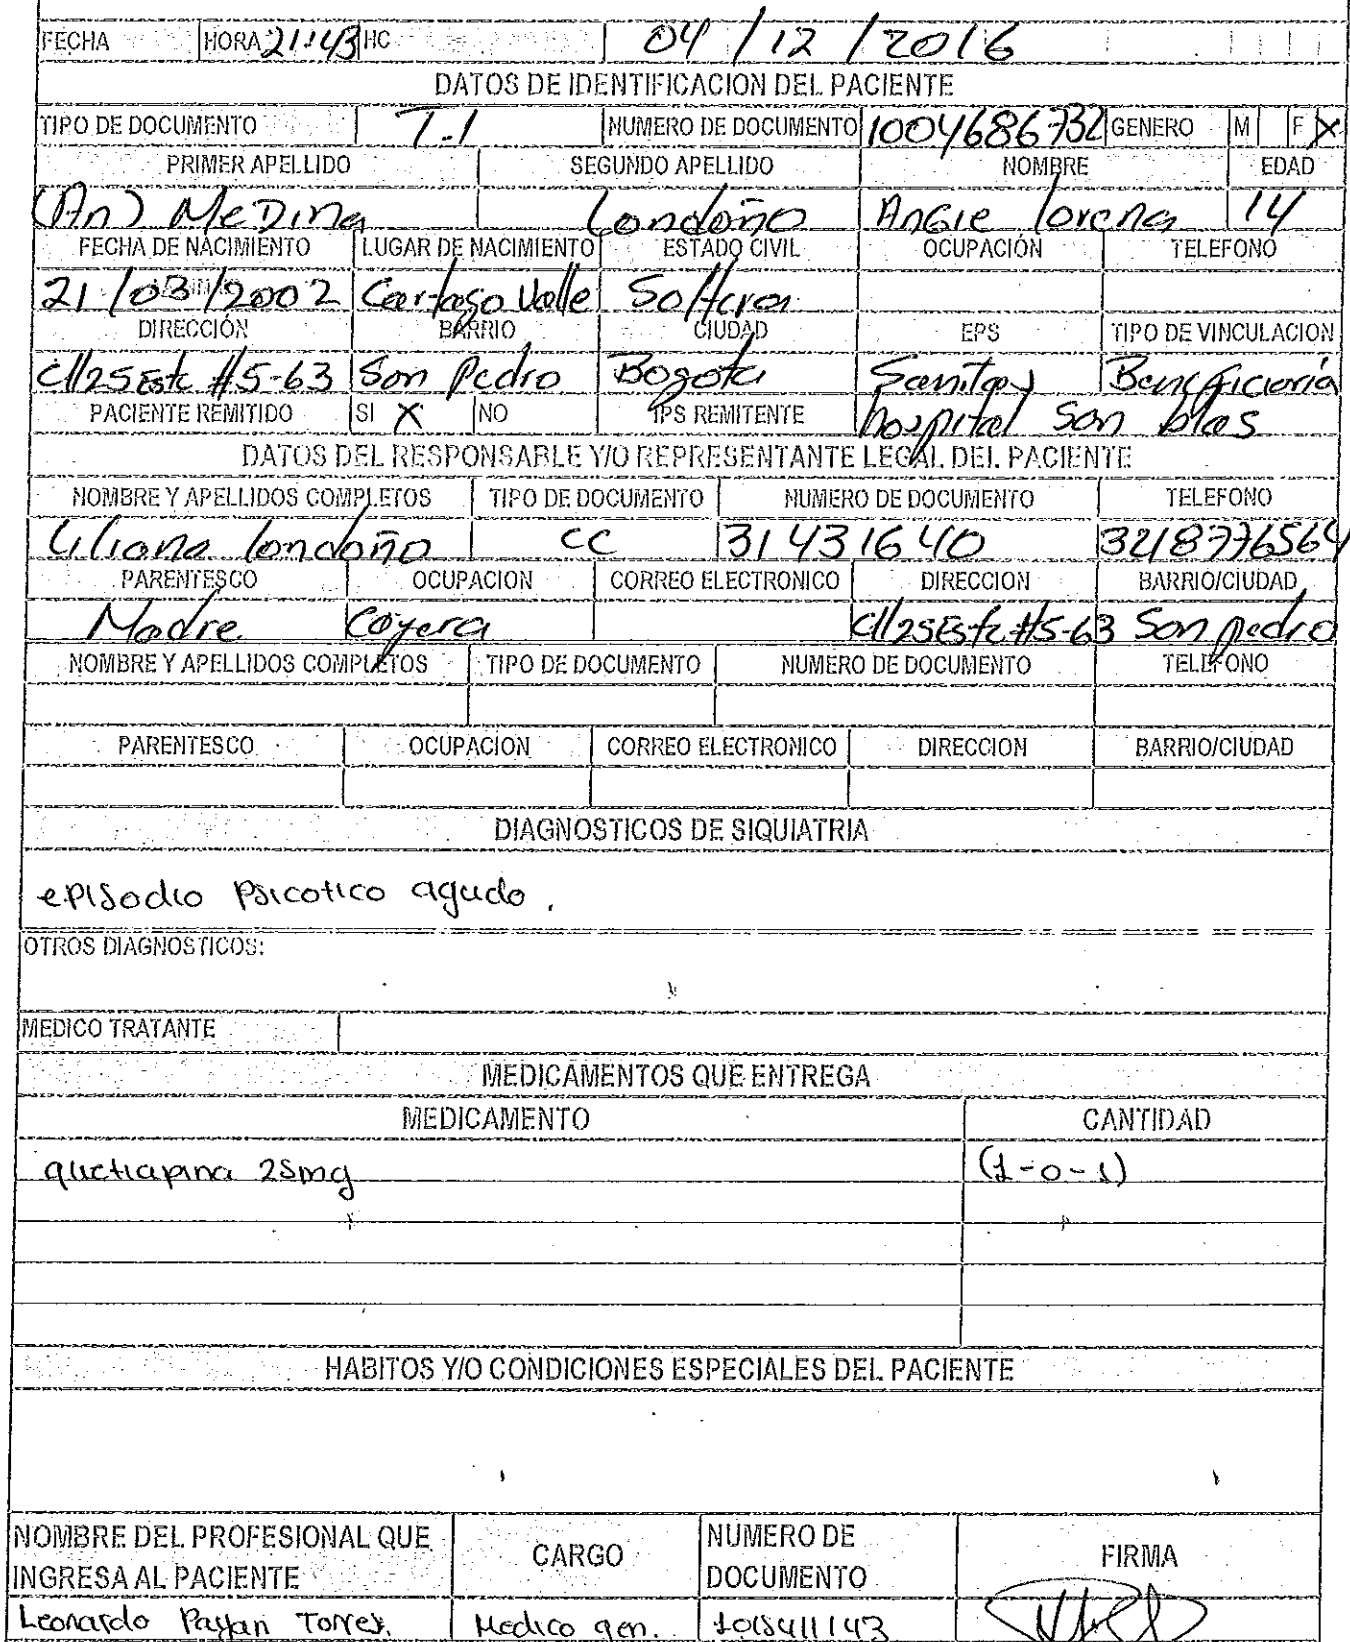 FECHA HORA 21:43 HC 04/12/2016
DATOS DE IDENTIFICACION DEL PACIENTE
TIPO DE DOCUMENTO T.I NUMERO DE DOCUMENTO 1004686732 GENERO M F X
PRIMER APELLIDO SEGUNDO APELLIDO NOMBRE EDAD
(An) Medina Londoño Angie lorena 14
FECHA DE NACIMIENTO LUGAR DE NACIMIENTO ESTADO CIVIL OCUPACIÓN TELEFONO
21/03/2002 Cartago Valle Soltera
DIRECCIÓN BARRIO CIUDAD EPS TIPO DE VINCULACION
Cll25Este #5-63 San Pedro Bogota Sanitas Beneficiaria
PACIENTE REMITIDO SI X NO IPS REMITENTE hospital San blas
DATOS DEL RESPONSABLE Y/O REPRESENTANTE LEGAL DEL PACIENTE
NOMBRE Y APELLIDOS COMPLETOS TIPO DE DOCUMENTO NUMERO DE DOCUMENTO TELEFONO
Liliana londoño CC 31431640 3218776564
PARENTESCO OCUPACION CORREO ELECTRONICO DIRECCION BARRIO/CIUDAD
Madre Cll25Este #5-63 San pedro
NOMBRE Y APELLIDOS COMPLETOS TIPO DE DOCUMENTO NUMERO DE DOCUMENTO TELEFONO
PARENTESCO OCUPACION CORREO ELECTRONICO DIRECCION BARRIO/CIUDAD
DIAGNOSTICOS DE SIQUIATRIA
episodio Psicotico agudo.
OTROS DIAGNOSTICOS:
MEDICO TRATANTE
MEDICAMENTOS QUE ENTREGA
MEDICAMENTO CANTIDAD
quetiapina 25mg (1-0-1)
HABITOS Y/O CONDICIONES ESPECIALES DEL PACIENTE
NOMBRE DEL PROFESIONAL QUE INGRESA AL PACIENTE CARGO NUMERO DE DOCUMENTO FIRMA
Leonardo Payan Torres. Medico gen. 1015411143